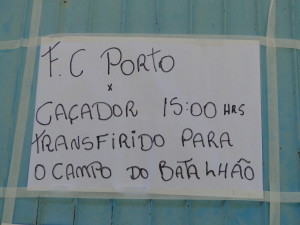 F.C PORTO
x
CAÇADOR 15:00 HRS
TRANSFIRIDO PARA
O CAMPO DO BATALHÃO